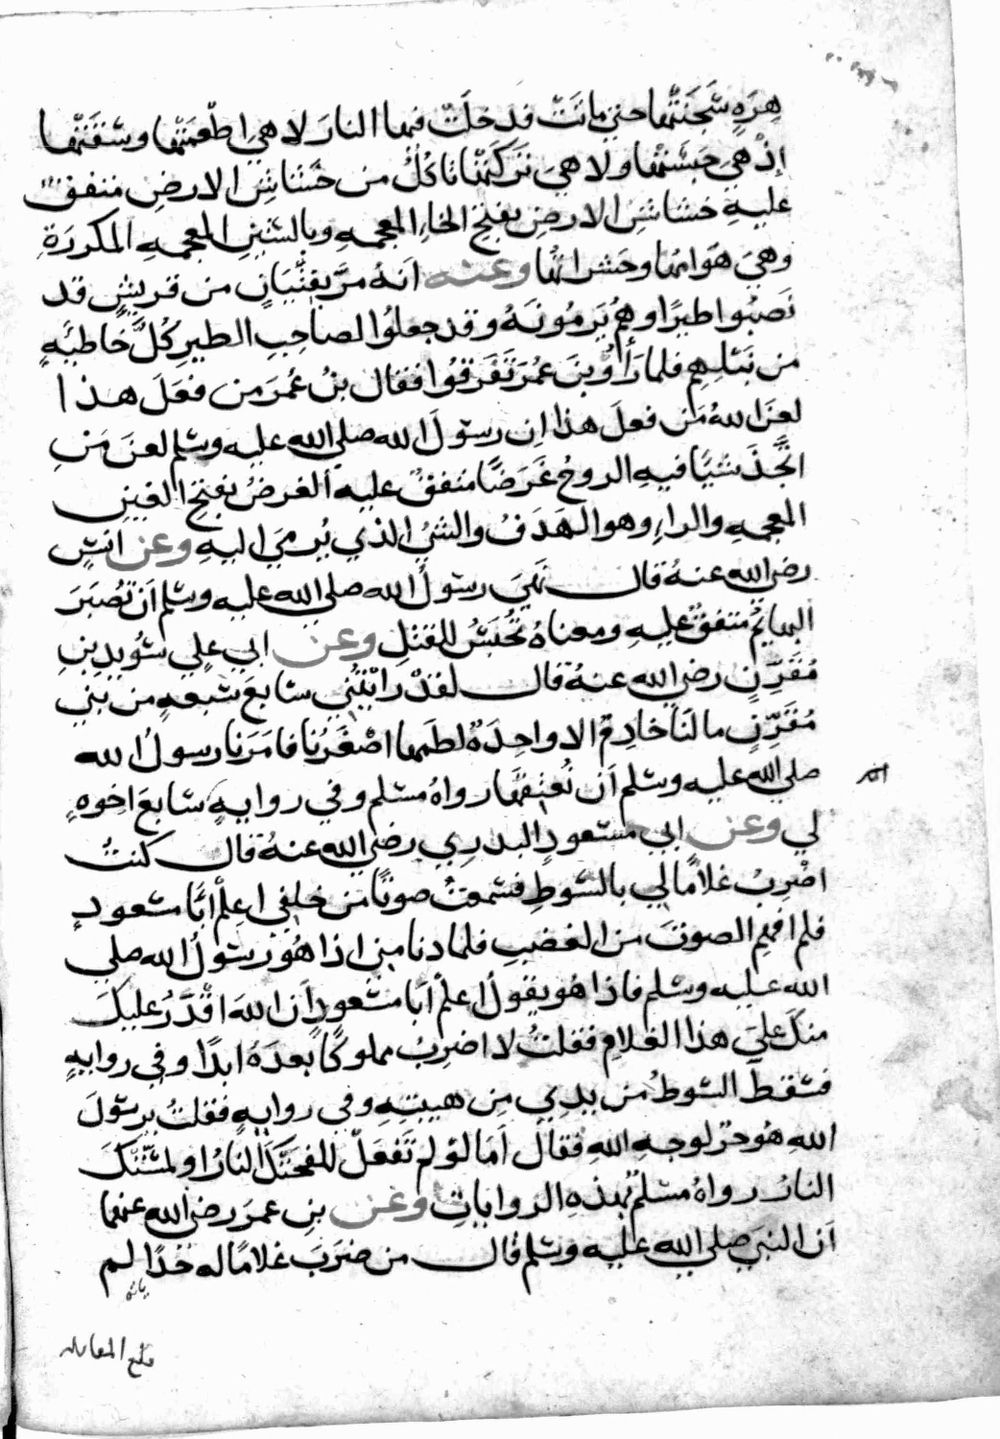 هِرةٍ سَجَنَتْها حتى ماتَتْ فدخلَتْ فيها النارَ لا هي اطْعَمَتْها وسَقَتْها
إذْ هي حبسَتْها ولا هيَ تَركَتْها تاكُلُ من خَشَاشِ الارضِ متفقٌ
عليهِ خشاش الارض بفتحِ الخاءِ المعجمهِ وبالشينِ المعجمهِ المكررَةِ
وهيَ هَوَامُّها وحشراتُها وعنه انهُ مرَّ بفتْيَانٍ من قريشٍ قد
نَصَبُوا طيرًا وهُم يَرمُونَهُ وقد جعلوُا لصاحِبِ الطيرِ كُلَّ خَاطيَهٍ
من نَبْلِهِم فلما رَأَوْا بنَ عمُرَ تَفَرقُوا فقال بنُ عُمرَ من فعَلَ هذا
لعنَ اللهُ مَن فعلَ هذا اِن رسوُلَ الله صلى الله عليه وسلم لعنَ مَنِ
اتَّخذَ شيًا فيهِ الروحُ غَرَضًا متفقٌ عليه الغرضُ بفتحِ الغينِ
المعجمهِ والراءِ وهو الهَدَفُ والشيُ الذي يُرمَي اليهِ وعن انسٍ
رضي الله عنهُ قال نَهيَ رسولُ الله صلى الله عليه وسلم اَن تُصْبَرَ
البهايمُ متفقٌ عليهِ ومعناهُ تُحْبَسُ للقتلِ وعن ابي علي سُوَيدِ بنِ
مُقَرِّنٍ رضي الله عنهُ قال لقدْ رايْتُني سابعَ سَبْعهٍ من بني
مُقَرِّنٍ ما لنَا خادِمٌ الا واحِدَةٌ لطَمها اصْغَرُنا فامَرَنا رسولُ الله
صلى الله عليه وسلم اَن نُعْتِقَها رواهُ مسلم وفي روايهٍ سابعَ اخوهٍ
لي وعن ابي مسعودٍ البدري رضي الله عنهُ قال كنتُ
اضْرِبُ غلامًا لي بالسَّوطِ فسَمعتُ صوتًا من خلفي اعلمْ ابَا مسعودٍ
فلم افهمِ الصوتَ من الغضبِ فلما دنا مني اذا هُو رسولُ الله صلي
الله عليه وسلم فاذا هو يقولُ اعلمْ ابَا مسعودٍ اَن اللهَ اقْدَرُ عليكَ
منكَ عليَ هذا الغلامِ فقلتُ لا اضرِبُ مملوكًا بعدَهُ ابدًا وفي روايهٍ
فسقطَ السَّوطُ من يدِي مِن هيبتِهِ وفي روايهٍ فقلتُ يرسولَ
اللهِ هُو حرٌ لوجهِ اللهِ فقالَ اَمَا لوْ لم تَفعَلْ للفحَتْكَ النارُ او لمسَّتْكَ
النارُ رواهُ مسلمٌ بهذهِ الرواياتِ وعن بنِ عمرَ رضي الله عنهما
اَن النبيَ صلى الله عليه وسلم قال من ضرَبَ غلامًا له حَدًا لم
ياته